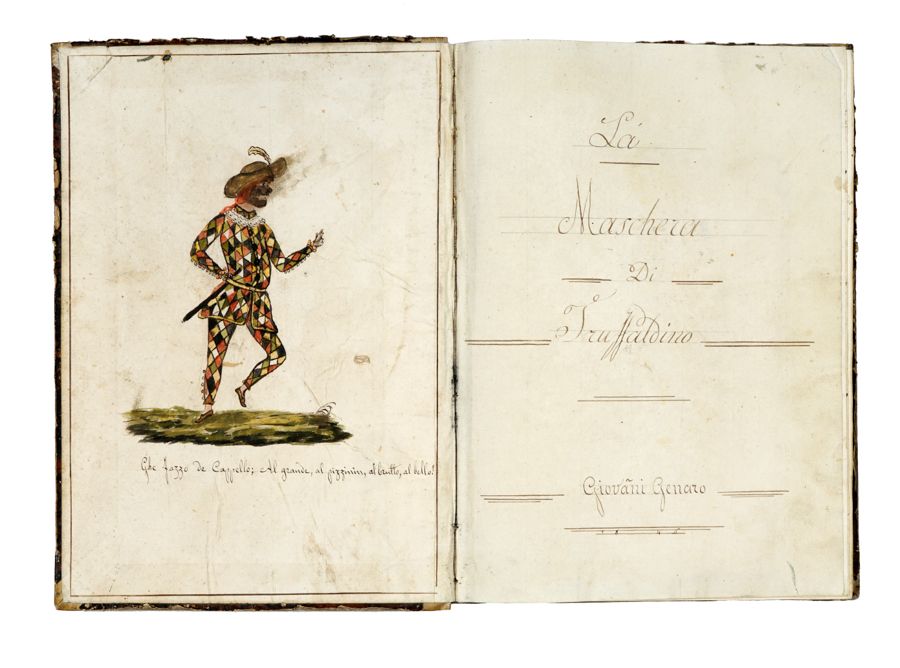 Ghe fazzo de Cappello; Al grande, al pizzinin, al brutto, al bello!
Lá
Maschera
Di
Truffaldino
Giovãni Genaro